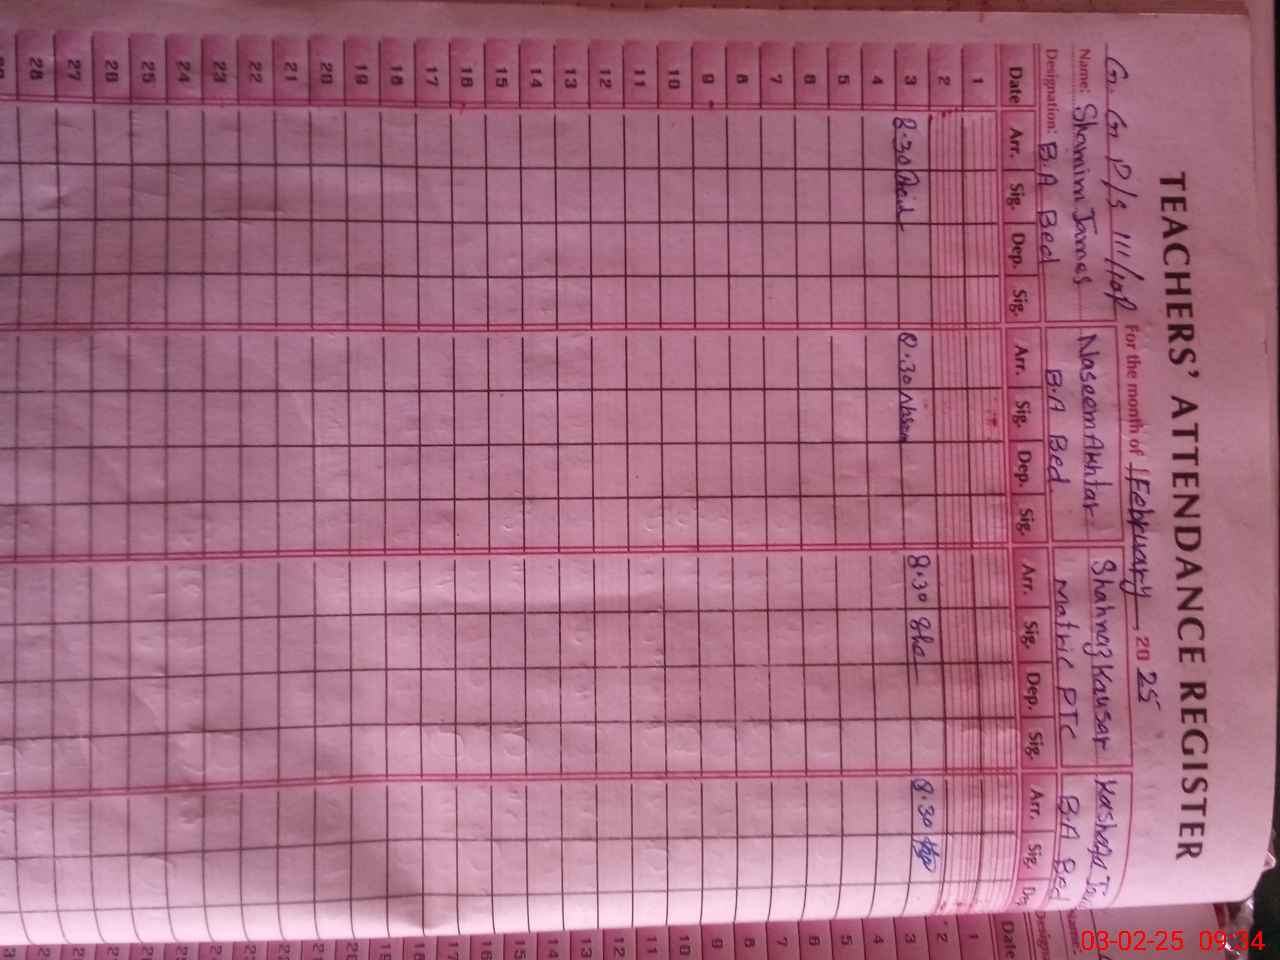 TEACHERS' ATTENDANCE REGISTER
G. G P/S 111/10R For the month of February 2025
Name: Shamim James Naseem Akhtar Shahnaz Kausar Kashafa
Designation: B.A Bed B.A Bed Matric PTC B.A Bed
Date Arr. Sig. Dep. Sig. Arr. Sig. Dep. Sig. Arr. Sig. Dep. Sig. Arr. Sig. Date
1 1
2 2
3 8.30 8.30 8.30 Sha 8.30 3
4 4
5 5
6 6
7 7
8 8
9 9
10 10
11 11
12 12
13 13
14 14
15 15
16 16
17 17
18 18
19 19
20
21
22
23
24
25
26
27
28
03-02-25 09:34